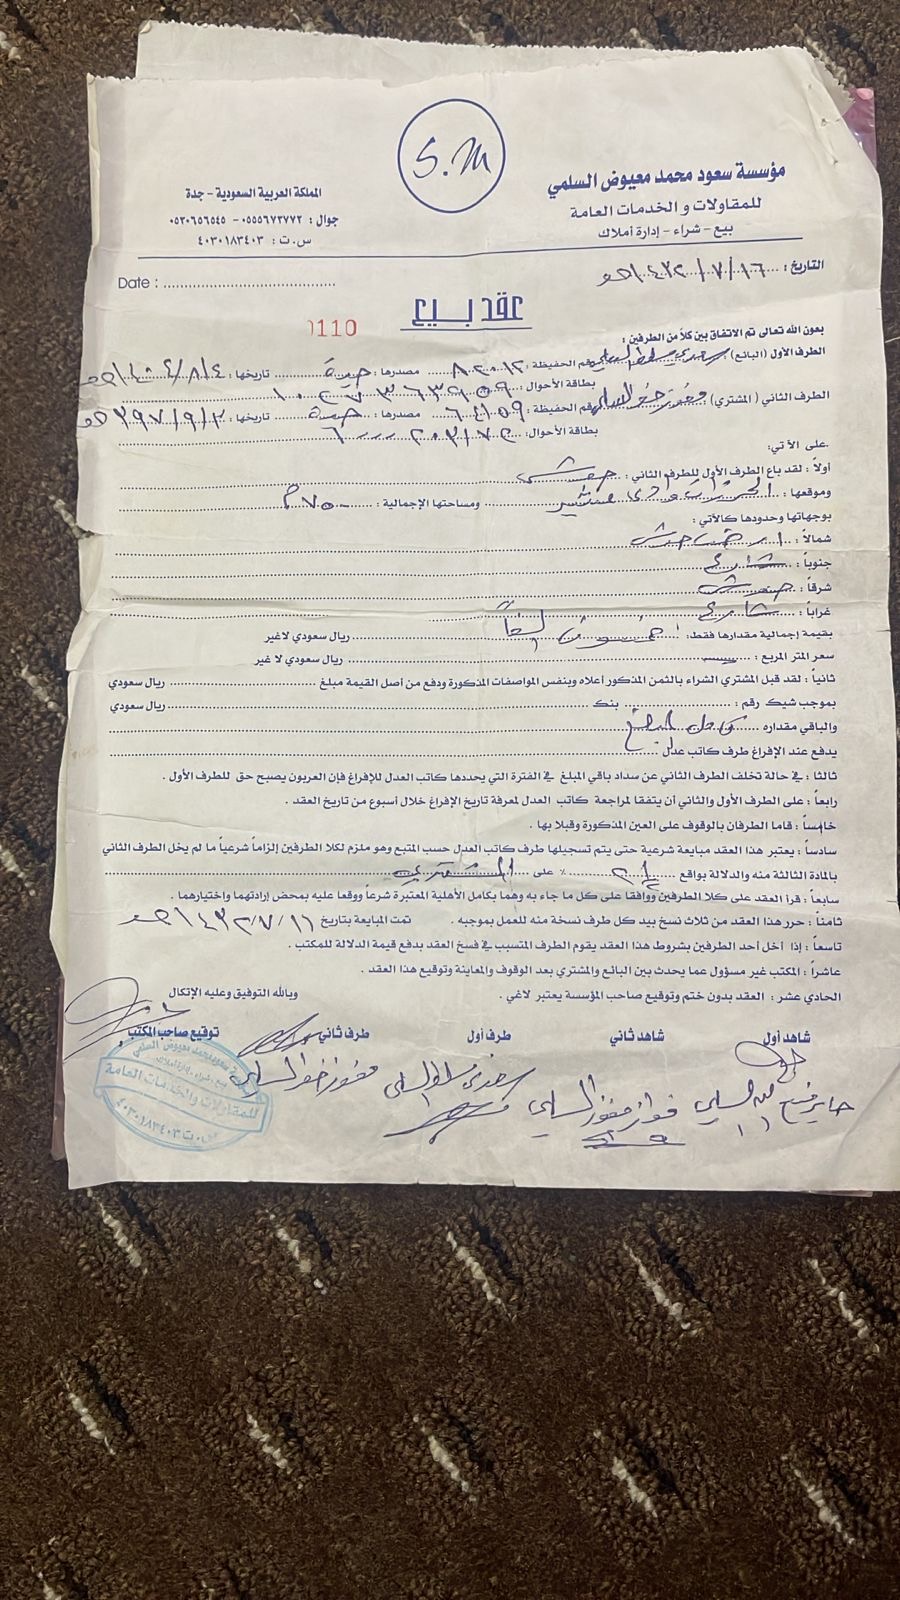 S.M
مؤسسة سعود محمد معيوض السلمي
للمقاولات و الخدمات العامة
بيع - شراء - إدارة أملاك
المملكة العربية السعودية - جدة
جوال : ٠٥٥٥٦٧٣٧٧٢ - ٠٥٣٠٦٥٦٥٤٥
س.ت : ٤٠٣٠١٨٣٤٠٣
التاريخ : ١٤٣٢/٧/١٦هـ
Date :
عقد بيع
0110
بعون الله تعالى تم الاتفاق بين كلاً من الطرفين :
الطرف الأول (البائع) السلمي رقم الحفيظة : ٨٢٠١٢ مصدرها : جدة تاريخها :
بطاقة الأحوال :
الطرف الثاني (المشتري) السلمي رقم الحفيظة : ٦٤١٥٩ مصدرها : جدة تاريخها : ١٣٩٧/٩/٢هـ
بطاقة الأحوال :
على الآتي:
أولاً : لقد باع الطرف الأول للطرف الثاني : حوش
وموقعها : ومساحتها الإجمالية : ٧٥٠م
بوجهاتها وحدودها كالآتي :
شمالاً : حوش
جنوباً : شارع
شرقاً : حوش
غراباً : شارع
بقيمة إجمالية مقدارها فقط: خمسون ألفاً ريال سعودي لاغير
سعر المتر المربع : ريال سعودي لا غير
ثانياً : لقد قبل المشتري الشراء بالثمن المذكور أعلاه وبنفس المواصفات المذكورة ودفع من أصل القيمة مبلغ ريال سعودي
بموجب شيك رقم : بنك ريال سعودي
والباقي مقداره كامل المبلغ
يدفع عند الإفراغ طرف كاتب عدل
ثالثا : في حالة تخلف الطرف الثاني عن سداد باقي المبلغ في الفترة التي يحددها كاتب العدل للإفراغ فإن العربون يصبح حق للطرف الأول .
رابعاً : على الطرف الأول والثاني أن يتفقا لمراجعة كاتب العدل لمعرفة تاريخ الإفراغ خلال أسبوع من تاريخ العقد .
خامساً : قاما الطرفان بالوقوف على العين المذكورة وقبلا بها .
سادساً : يعتبر هذا العقد مبايعة شرعية حتى يتم تسجيلها طرف كاتب العدل حسب المتبع وهو ملزم لكلا الطرفين إلزاماً شرعياً ما لم يخل الطرف الثاني
بالمادة الثالثة منه والدلالة بواقع % على المشتري
سابعاً : قرأ العقد على كلا الطرفين ووافقا على كل ما جاء به وهما بكامل الأهلية المعتبرة شرعاً ووقعا عليه بمحض إرادتهما واختيارهما .
ثامناً : حرر هذا العقد من ثلاث نسخ بيد كل طرف نسخة منه للعمل بموجبه . تمت المبايعة بتاريخ ١٤٣٢/٧/١٦هـ
تاسعاً : إذا أخل أحد الطرفين بشروط هذا العقد يقوم الطرف المتسبب في فسخ العقد بدفع قيمة الدلالة للمكتب .
عاشراً : المكتب غير مسؤول عما يحدث بين البائع والمشتري بعد الوقوف والمعاينة وتوقيع هذا العقد .
الحادي عشر : العقد بدون ختم وتوقيع صاحب المؤسسة يعتبر لاغي .
وبالله التوفيق وعليه الإتكال
شاهد أول شاهد ثاني طرف أول طرف ثاني توقيع صاحب المكتب
السلمي فواز السلمي السلمي السلمي
سعود محمد معيوض السلمي
بيع - شراء - إدارة أملاك
للمقاولات والخدمات العامة
س.ت ٤٠٣٠١٨٣٤٠٣